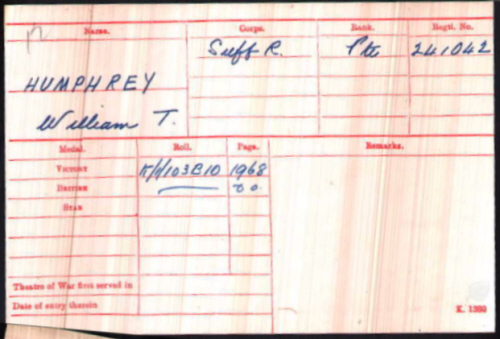 Name. Corps. Rank. Regtl. No.
HUMPHREY Suff R. Pte 241042
William T.
Medal. Roll. Page. Remarks.
VICTORY K/1/103B10 1968
BRITISH do.
STAR
Theatre of War first served in
Date of entry therein
K. 1380